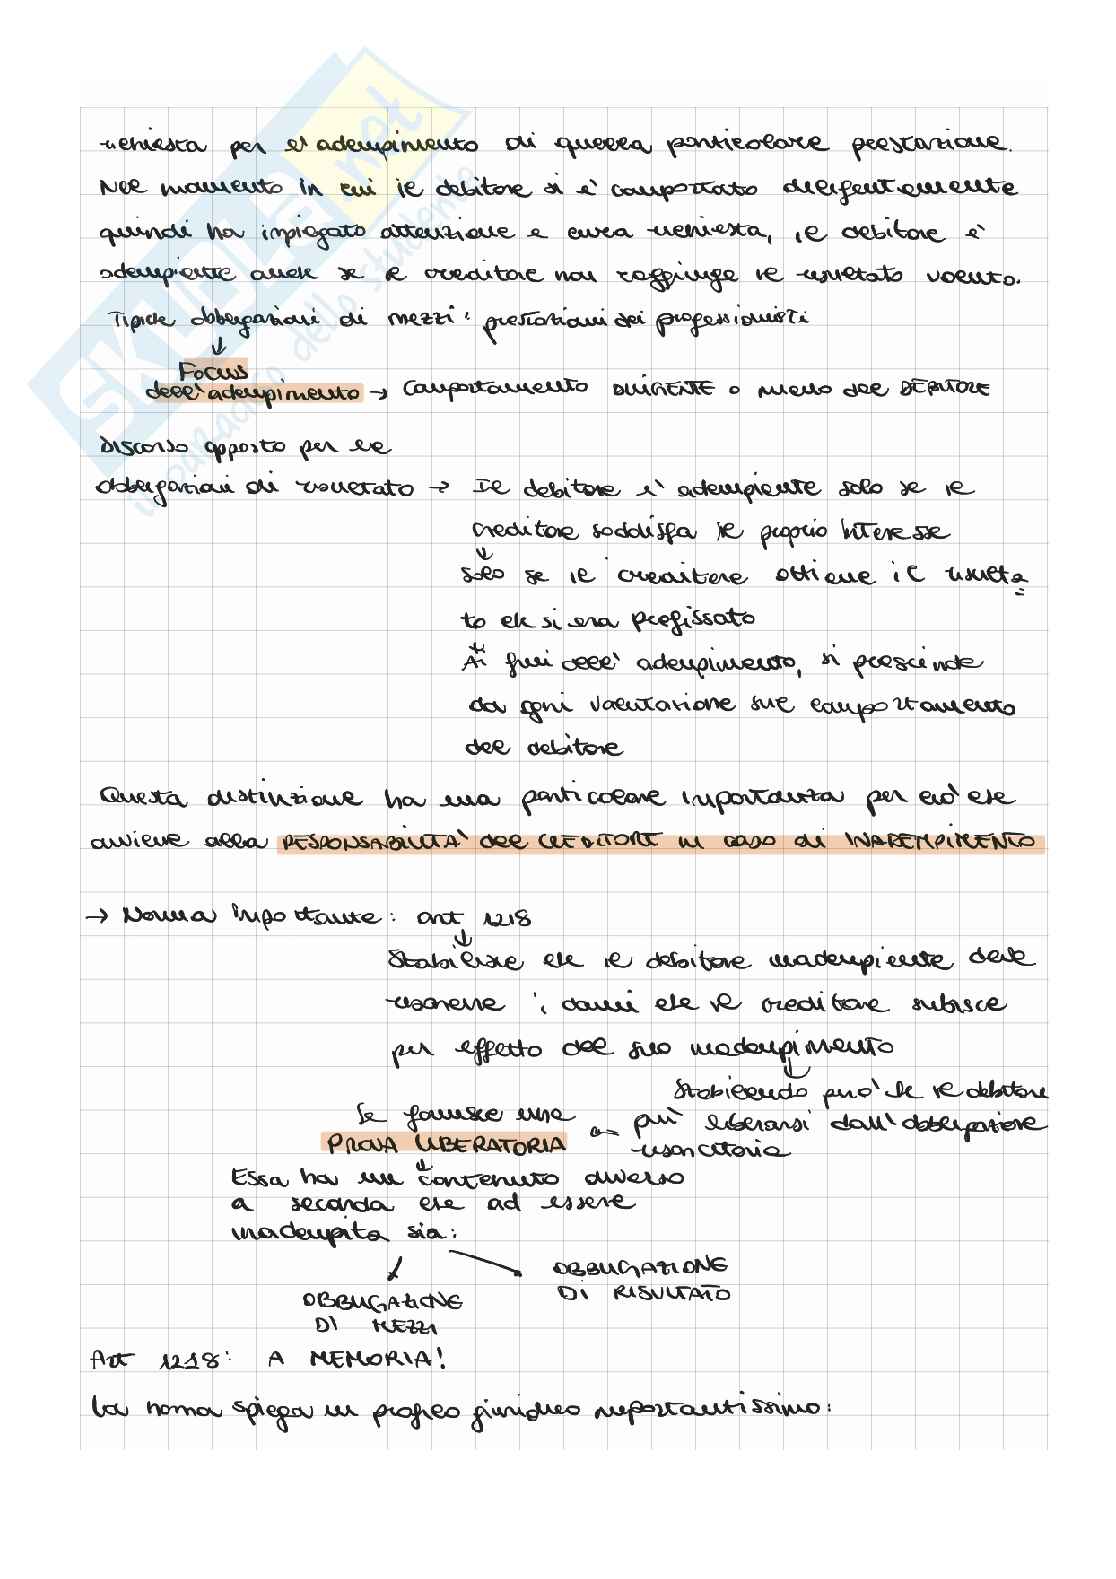 richiesta per l'adempimento di quella particolare prestazione.
Nel momento in cui il debitore si è comportato diligentemente
quindi ha impiegato attenzione e cura richiesta, il debitore è
adempiente anche se il creditore non raggiunge il risultato voluto.
Tipiche obbligazioni di mezzi: prestazioni dei professionisti
↓
Focus
dell'adempimento → comportamento DILIGENTE o meno del DEBITORE
Discorso opposto per le
obbligazioni di risultato → Il debitore è adempiente solo se il
creditore soddisfa il proprio interesse
↓
solo se il creditore ottiene il risulta=
to che si era prefissato
Ai fini dell'adempimento, si prescinde
da ogni valutazione sul comportamento
del debitore
Questa distinzione ha una particolare importanza per ciò che
avviene alla RESPONSABILITÀ del CREDITORE in caso di INADEMPIMENTO
→ Norma importante: art 1218
↓
Stabilisce che il debitore inadempiente deve
risarcire i danni che il creditore subisce
per effetto del suo inadempimento
↓
Stabilendo però che il debitore
può liberarsi dall'obbligazione
risarcitoria
← Se fornisce una
PROVA LIBERATORIA
↓
Essa ha un contenuto diverso
a seconda che ad essere
inadempita sia:
OBBLIGAZIONE
DI RISULTATO
OBBLIGAZIONE
DI MEZZI
Art 1218: A MEMORIA!
La norma spiega un profilo giuridico importantissimo:
SKUOLA.net
il paradiso dello studente